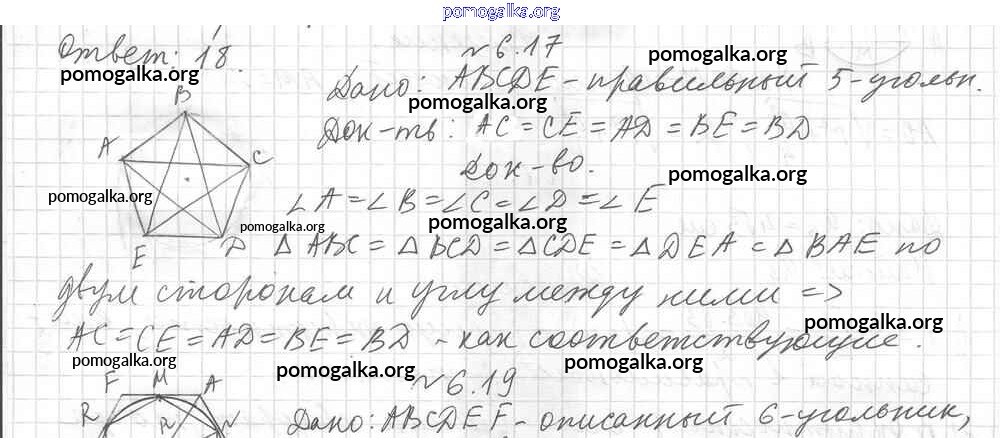 pomogalka.org
Ответ: 18.
№ 6.17
pomogalka.org
pomogalka.org
Дано: ABCDE - правильный 5-угольн.
pomogalka.org
B
Док-ть: AC = CE = AD = BE = BD
A
C
Док-во.
pomogalka.org
pomogalka.org
∠A = ∠B = ∠C = ∠D = ∠E
pomogalka.org
pomogalka.org
E
D
△ABC = △BCD = △CDE = △DEA = △BAE по
двум сторонам и углу между ними =>
pomogalka.org
AC = CE = AD = BE = BD - как соответствующие.
pomogalka.org
pomogalka.org
pomogalka.org
№ 6.19
F M A
R
N
Дано: ABCDEF - описанный 6-угольник,